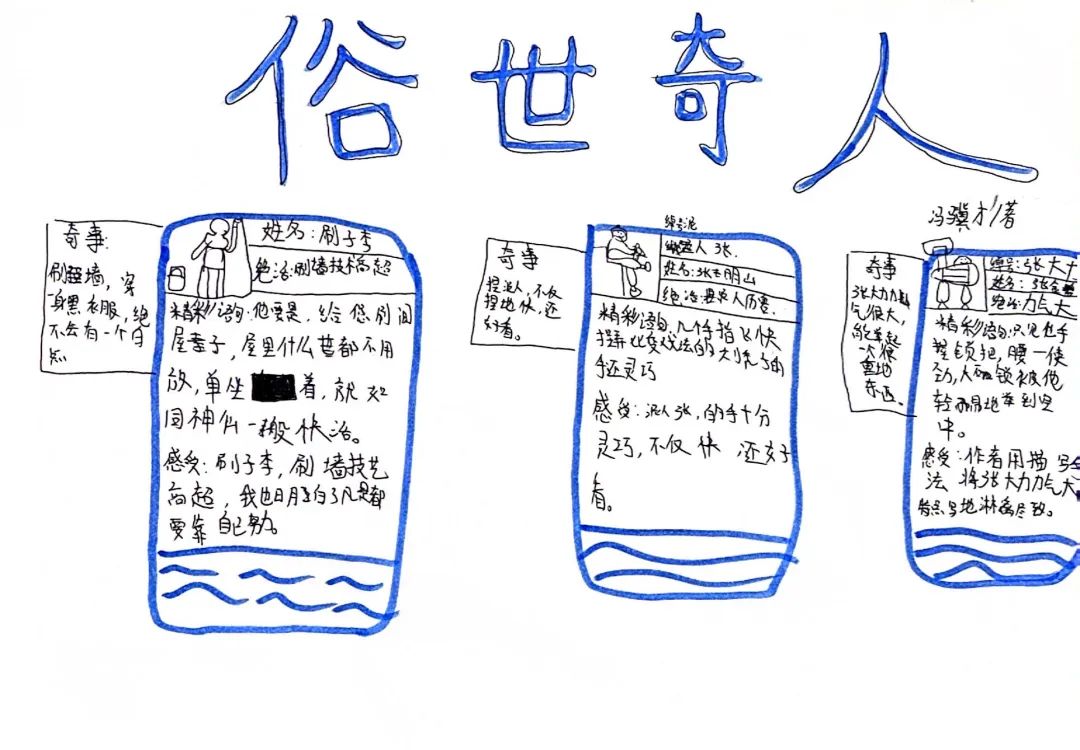 俗世奇人
冯骥才/著
奇事:
刷墙，穿
一身黑衣服，绝
不会有一个白
点
姓名:刷子李
绝活:刷墙技术高超
精彩语句:他要是给您刷间
屋子，屋里什么都不用
放，单坐着，就如
同神仙一般快活。
感受:刷子李，刷墙技艺
高超，我也明白了凡是都
要靠自己努力。
奇事
捏泥人，不仅
捏地快，还
好看。
绰号泥
人张
姓名:张明山
绝活:捏泥人厉害
精彩语句:几个手指飞快
捏比变戏法的刘秃子的
手还灵巧
感受:泥人张，的手十分
灵巧，不仅快还好
看。
奇事
张大力力
气很大，
能举起
一个很
重地
东西。
绰号:张大力
姓名:张金璧
绝活:力气大
精彩语句:只见他手
握锁把，腰一使
劲，大锁被他
轻易地举到空
中。
感受:作者用描写
法将张大力力气大
特点写地淋漓尽致。